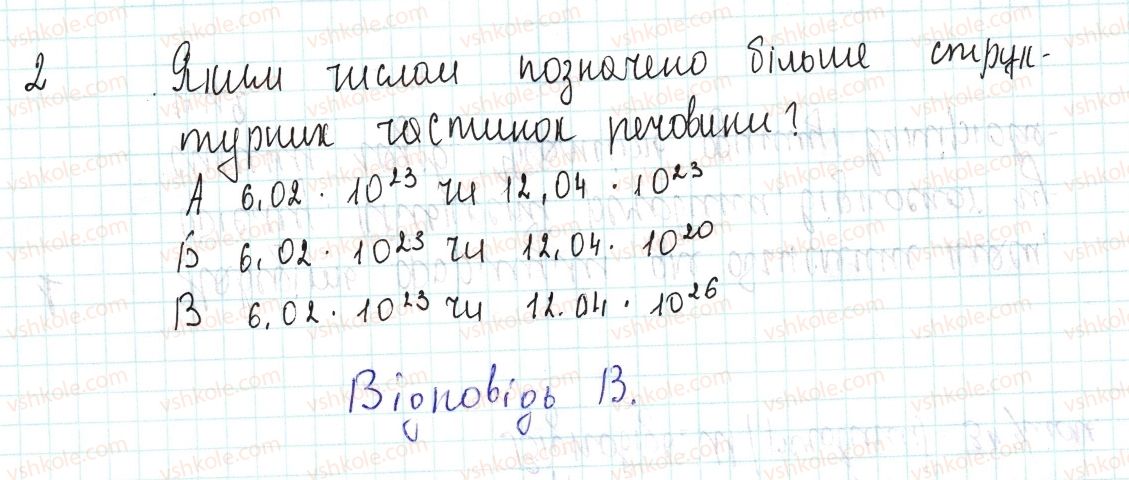 2 Яким числом позначено більше струк-
турних частинок речовини?
А 6,02 · 10²³ чи 12,04 · 10²³
Б 6,02 · 10²³ чи 12,04 · 10²⁰
В 6,02 · 10²³ чи 12.04 · 10²⁶
Відповідь В.